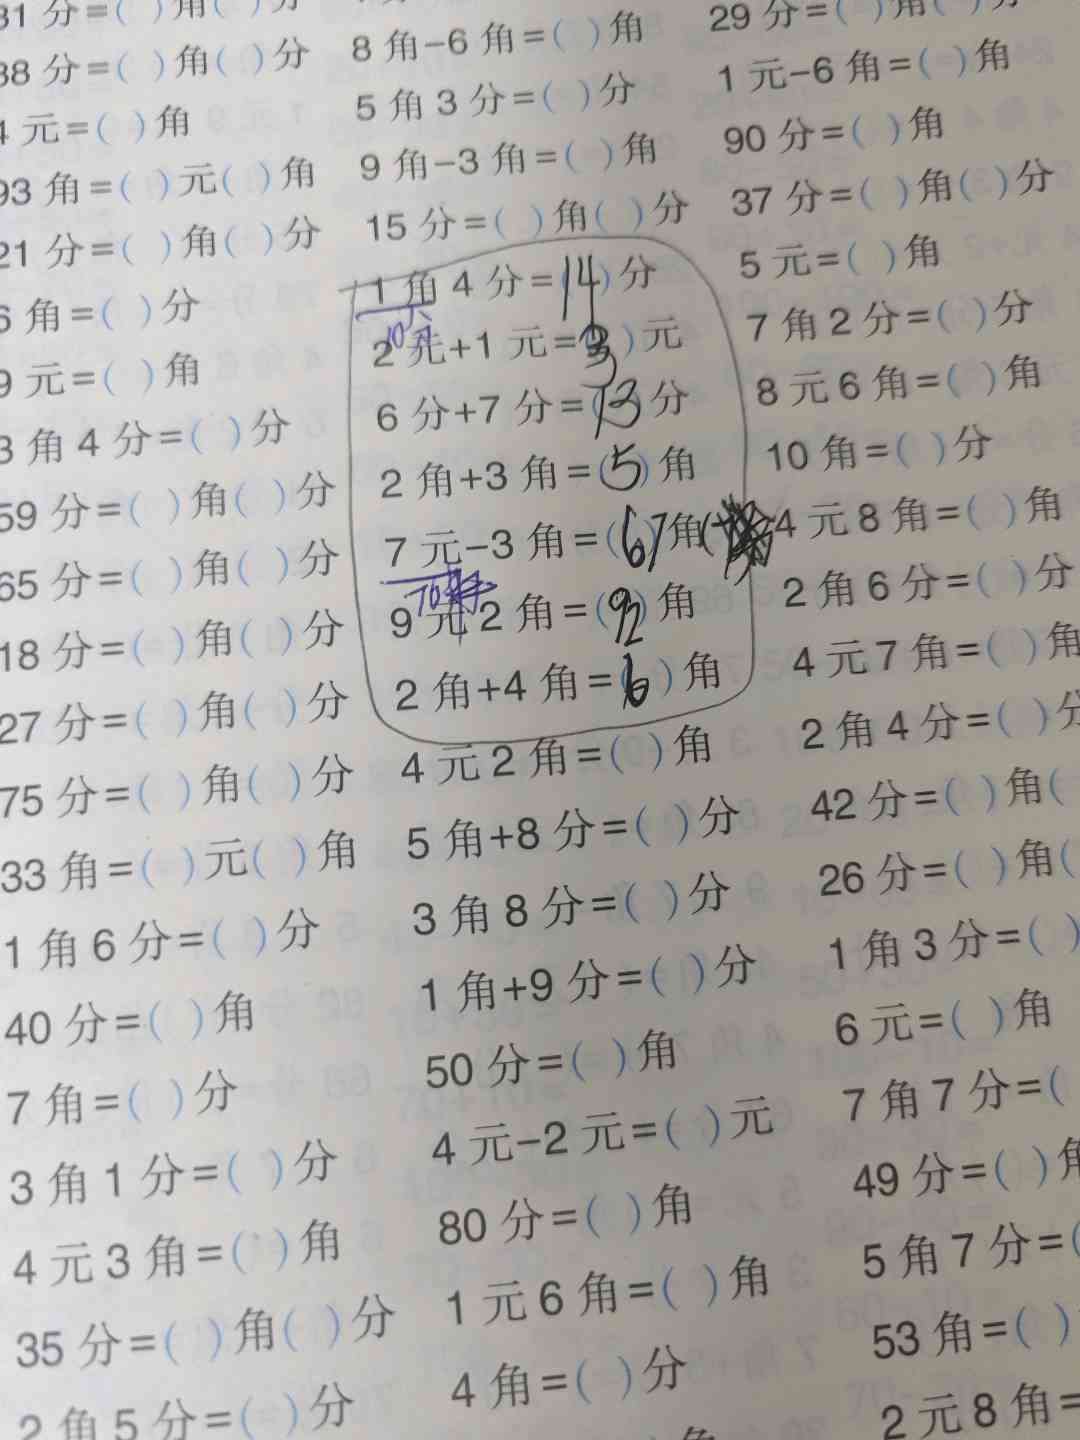 31 分=( )角( )分
88 分=( )角( )分
4 元=( )角
93 角=( )元( )角
21 分=( )角( )分
6 角=( )分
9 元=( )角
3 角 4 分=( )分
59 分=( )角( )分
65 分=( )角( )分
18 分=( )角( )分
27 分=( )角( )分
75 分=( )角( )分
33 角=( )元( )角
1 角 6 分=( )分
40 分=( )角
7 角=( )分
3 角 1 分=( )分
4 元 3 角=( )角
35 分=( )角( )分
2 角 5 分=( )分
8 角-6 角=( )角
5 角 3 分=( )分
9 角-3 角=( )角
15 分=( )角( )分
1 角 4 分=(14)分
10分
2 元+1 元=(3)元
6 分+7 分=(13)分
2 角+3 角=(5)角
7 元-3 角=(67)角(
70角
9 元 2 角=(92)角
2 角+4 角=(6)角
4 元 2 角=( )角
5 角+8 分=( )分
3 角 8 分=( )分
1 角+9 分=( )分
50 分=( )角
4 元-2 元=( )元
80 分=( )角
1 元 6 角=( )角
4 角=( )分
角
29 分=( )角( )分
1 元-6 角=( )角
90 分=( )角
37 分=( )角( )分
5 元=( )角
7 角 2 分=( )分
8 元 6 角=( )角
10 角=( )分
4 元 8 角=( )角
2 角 6 分=( )分
4 元 7 角=( )角
2 角 4 分=( )分
42 分=( )角(
26 分=( )角(
1 角 3 分=( )
6 元=( )角
7 角 7 分=(
49 分=( )角
5 角 7 分=(
53 角=( )
2 元 8 角=